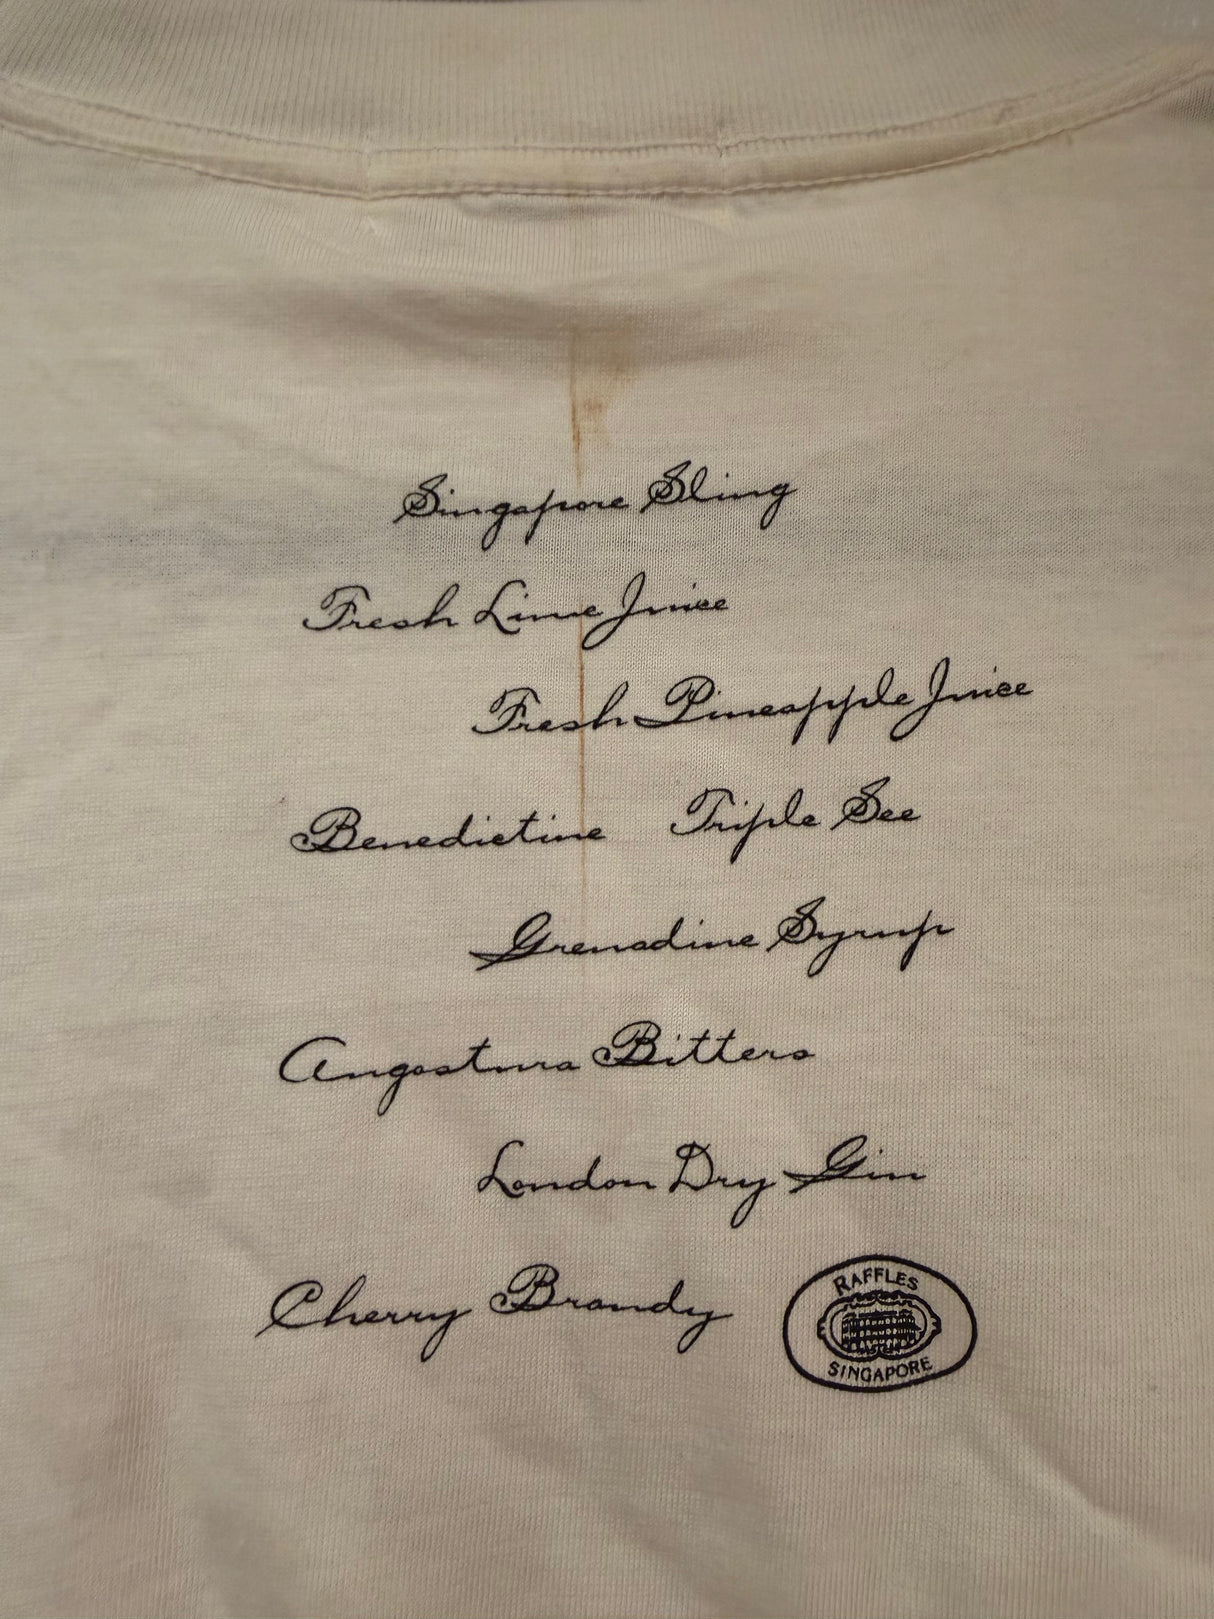 Singapore Sling
Fresh Lime Juice
Fresh Pineapple Juice
Benedictine Triple Sec
Grenadine Syrup
Angostura Bitters
London Dry Gin
Cherry Brandy
RAFFLES
SINGAPORE